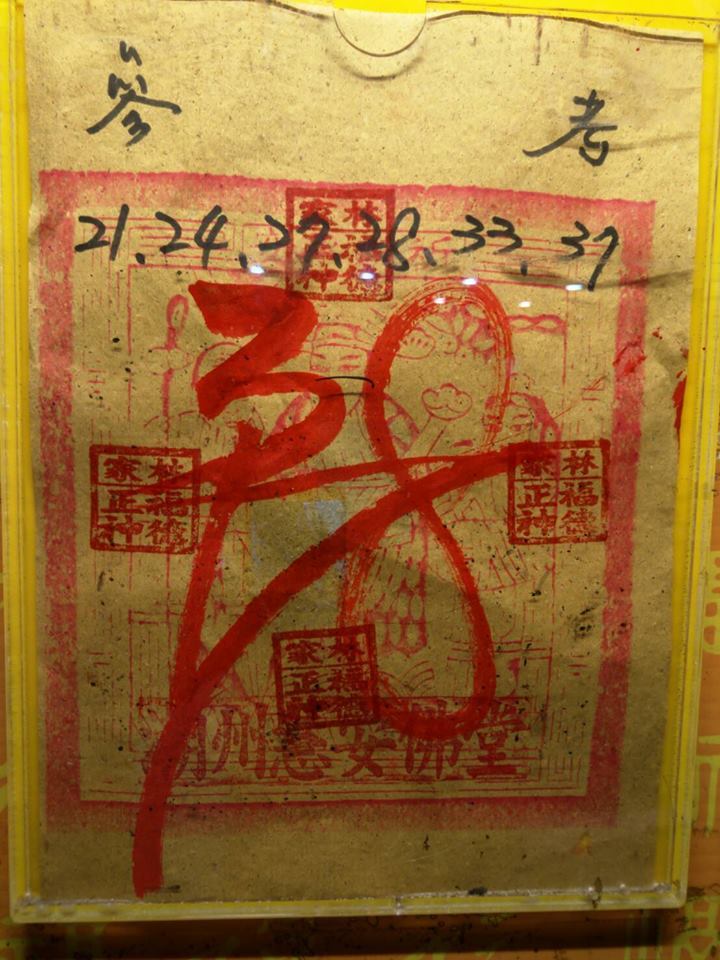 參 考
林福德
家正神
21、24、27、28、33、37
林福德
家正神
林福德
家正神
林福德
家正神
潮州慈安佛堂